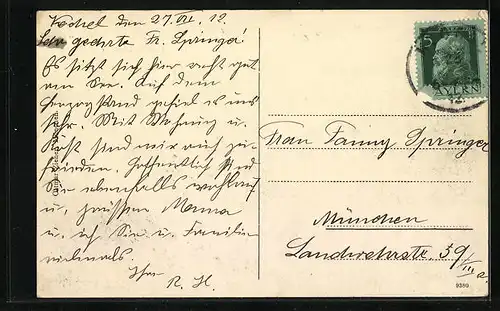 Kochel den 27. VI. 12.
Sehr geehrte Fr. Springer!
Es sitzt sich hier recht gut
am See. Auf dem
Herzogstand gefiel es uns
sehr. Mit Wohnung u.
Kost sind wir auch zu-
frieden. Hoffentlich sind
Sie ebenfalls wohlauf
u. grüssen Mama
u. ich Sie u. Familie
vielmals.
Ihre
R. H.
5
BAYERN
Frau Fanny Springer
München
Landwehrstr. 39/III
9380